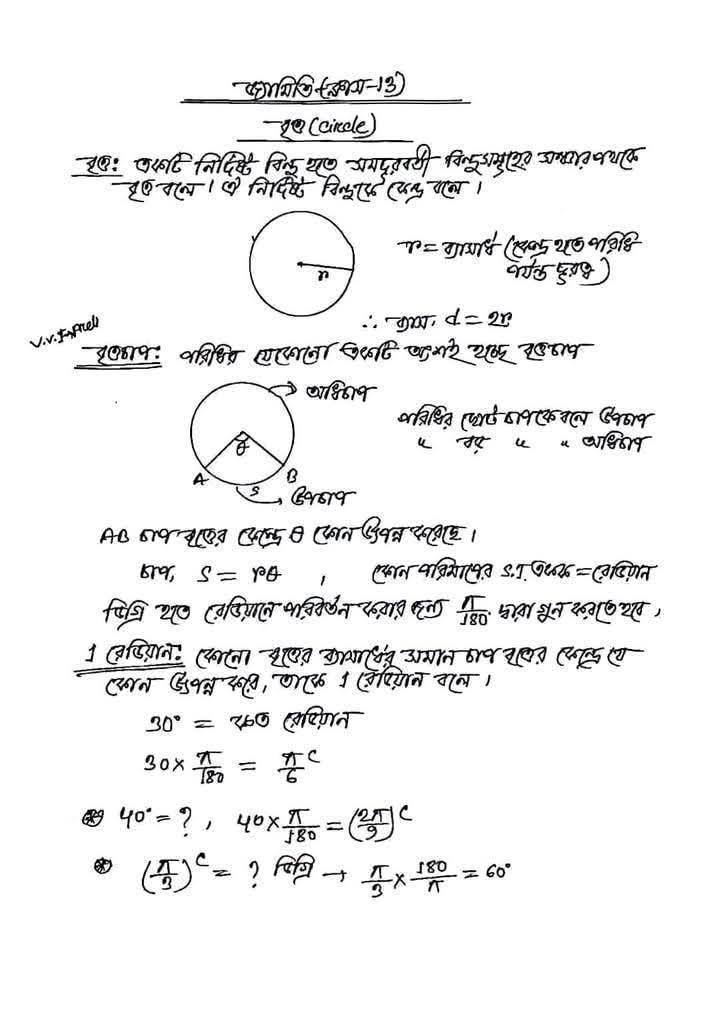 জ্যামিতি (ক্লাস-13)
বৃত্ত (Circle)
বৃত্ত: একটি নির্দিষ্ট বিন্দু হতে সমদূরবর্তী বিন্দুসমূহের সঞ্চার পথকে
বৃত্ত বলে। ঐ নির্দিষ্ট বিন্দুকে কেন্দ্র বলে।
r
r = ব্যাসার্ধ (কেন্দ্র হতে পরিধি
পর্যন্ত দূরত্ব)
∴ ব্যাস, d = 2r
বৃত্তচাপ: পরিধির যেকোনো একটি অংশই হচ্ছে বৃত্তচাপ
অধিচাপ
পরিধির ছোট চাপকে বলে উপচাপ
" বড় " " অধিচাপ
θ
A B
s
উপচাপ
AB চাপ বৃত্তের কেন্দ্রে θ কোন উৎপন্ন করেছে।
চাপ, S = rθ , কোন পরিমাপের S.I একক = রেডিয়ান
ডিগ্রি হতে রেডিয়ানে পরিবর্তন করার জন্য π/180 দ্বারা গুন করতে হবে,
1 রেডিয়ান: কোনো বৃত্তের ব্যাসার্ধের সমান চাপ বৃত্তের কেন্দ্রে যে
কোন উৎপন্ন করে, তাকে 1 রেডিয়ান বলে।
30° = কত রেডিয়ান
30 × π/180 = π/6 ᶜ
40° = ? , 40 × π/180 = (2π/9)ᶜ
(π/3)ᶜ = ? ডিগ্রি → π/3 × 180/π = 60°